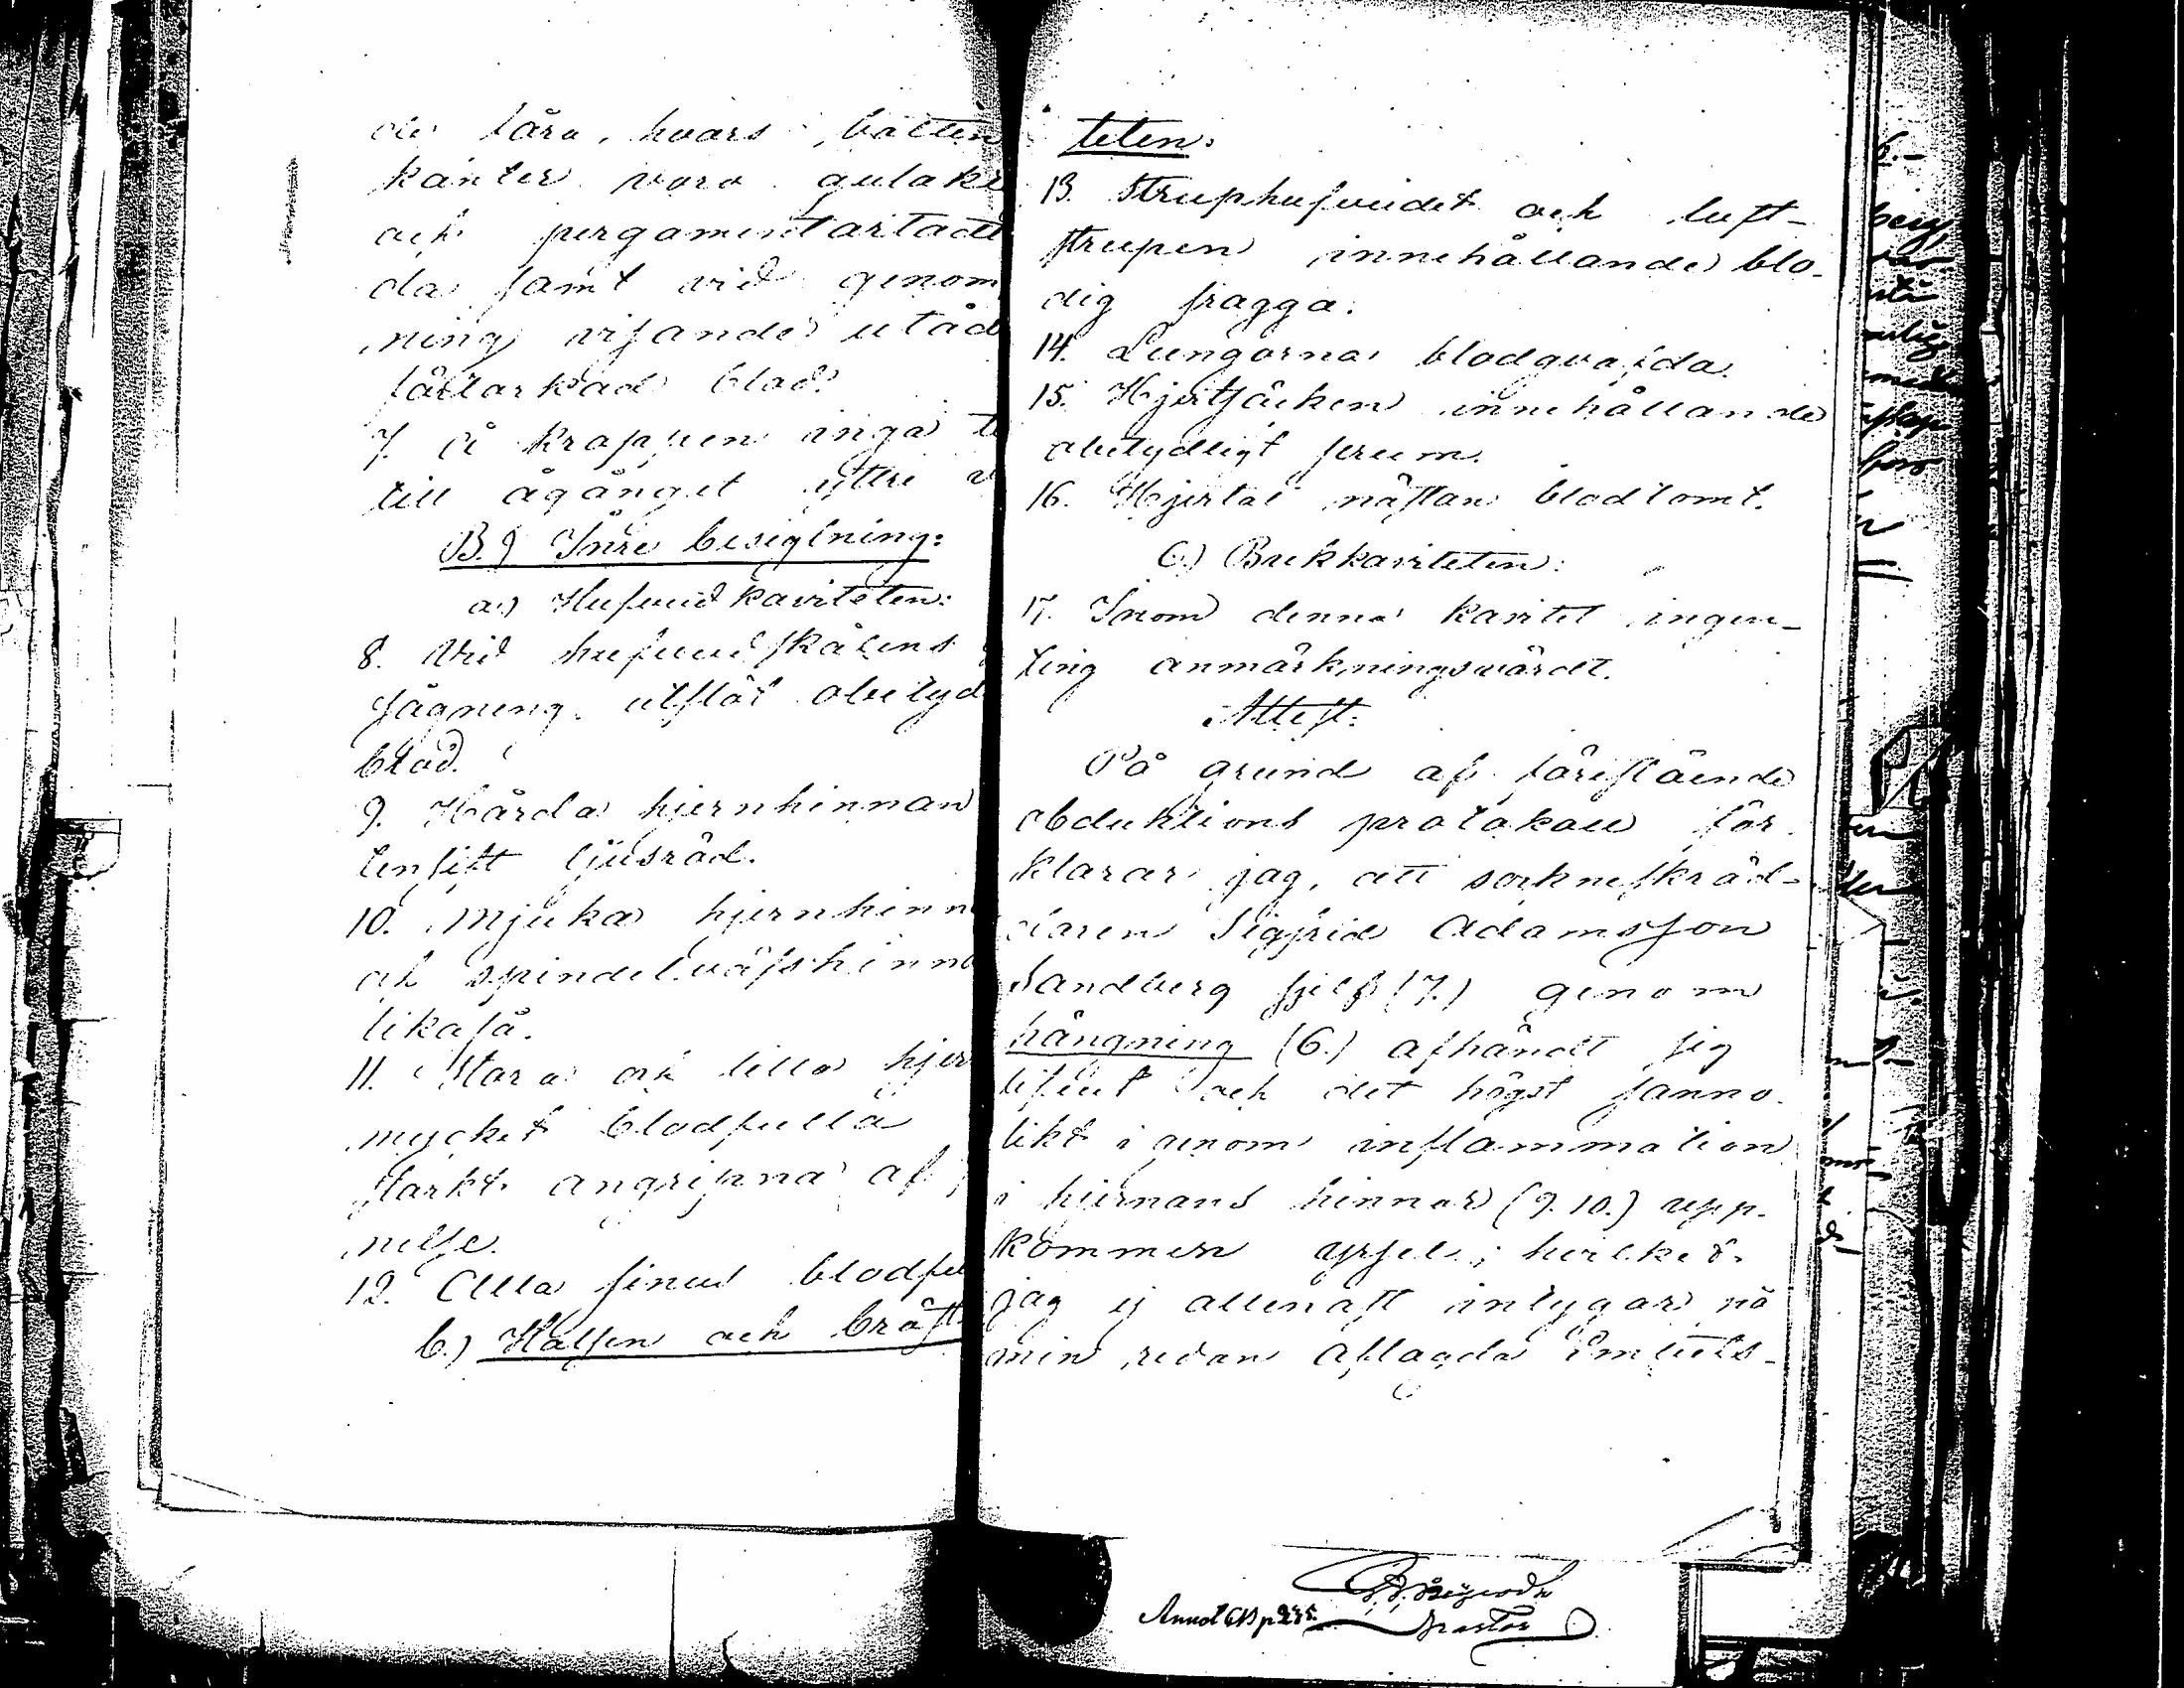 de fåra, hvars botten
kanter voro gulakt
och pergamentartade
da samt vid genom
ning visande utåd
såltorkad blod.
7. Å kroppen inga te
till ågånget yttre v
B.) Inre besigtning:
a.) Hufvudkaviteten:
8. Vid hufvudskålens
sågning utflöt obetyd
blod.
9. Hårda hjernhinnan
tensift ljusröd.
10. Mjuka hjernhinn
och spindelväfshinn
likaså.
11. Stora och lilla hjer
mycket blodfulla
starkt angripna af
nelse.
12. Alla sinus blodfu
b.) Halsen och bröst
teten:
13. Struphufvudet och luft-
strupen innehållande blo-
dig fragga.
14. Lungorna blodqvafda.
15. Hjertsäcken innehållande
obetydligt serum.
16. Hjertat nästan blodtomt.
C.) Bukkaviteten:
17. Inom denna kavitet ingen-
ting anmärkningsvärdt.
Attest:
På grund af föreståénde
obduktions protokoll för-
klarar jag, att sockneskräd-
daren Sigfrid Adamsson
Sandberg sjelf (7.) genom
hängning (6.) afhändt sig
lifvet och det högst sanno-
likt i genom inflammation
i hjernans hinnor (9. 10.) upp-
kommen yrsel; hvilket
jag ej allenast intygar på
min redan aflagda Embets-
Annot CB p 235.
Pastor